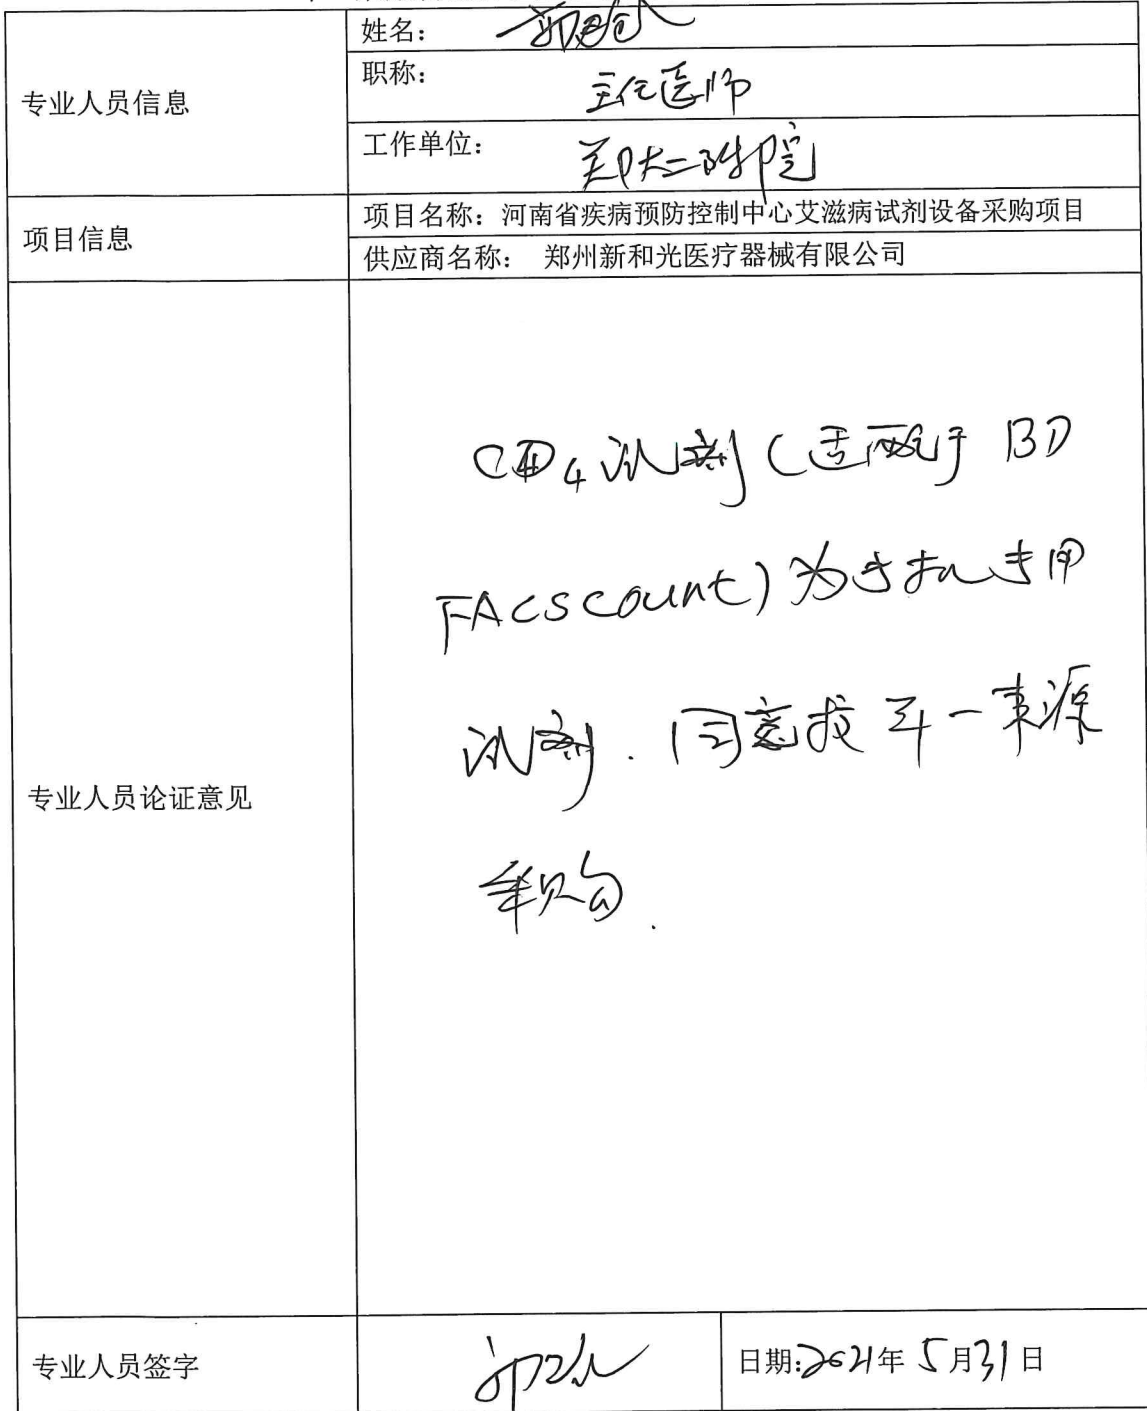 专业人员信息
姓名：
职称： 主任医师
工作单位： 郑大二附院
项目信息
项目名称：河南省疾病预防控制中心艾滋病试剂设备采购项目
供应商名称： 郑州新和光医疗器械有限公司
专业人员论证意见
CD4试剂（适配于BD
FACSCount）为专机专用
试剂.同意按单一来源
采购.
专业人员签字
日期:2021年5月31日